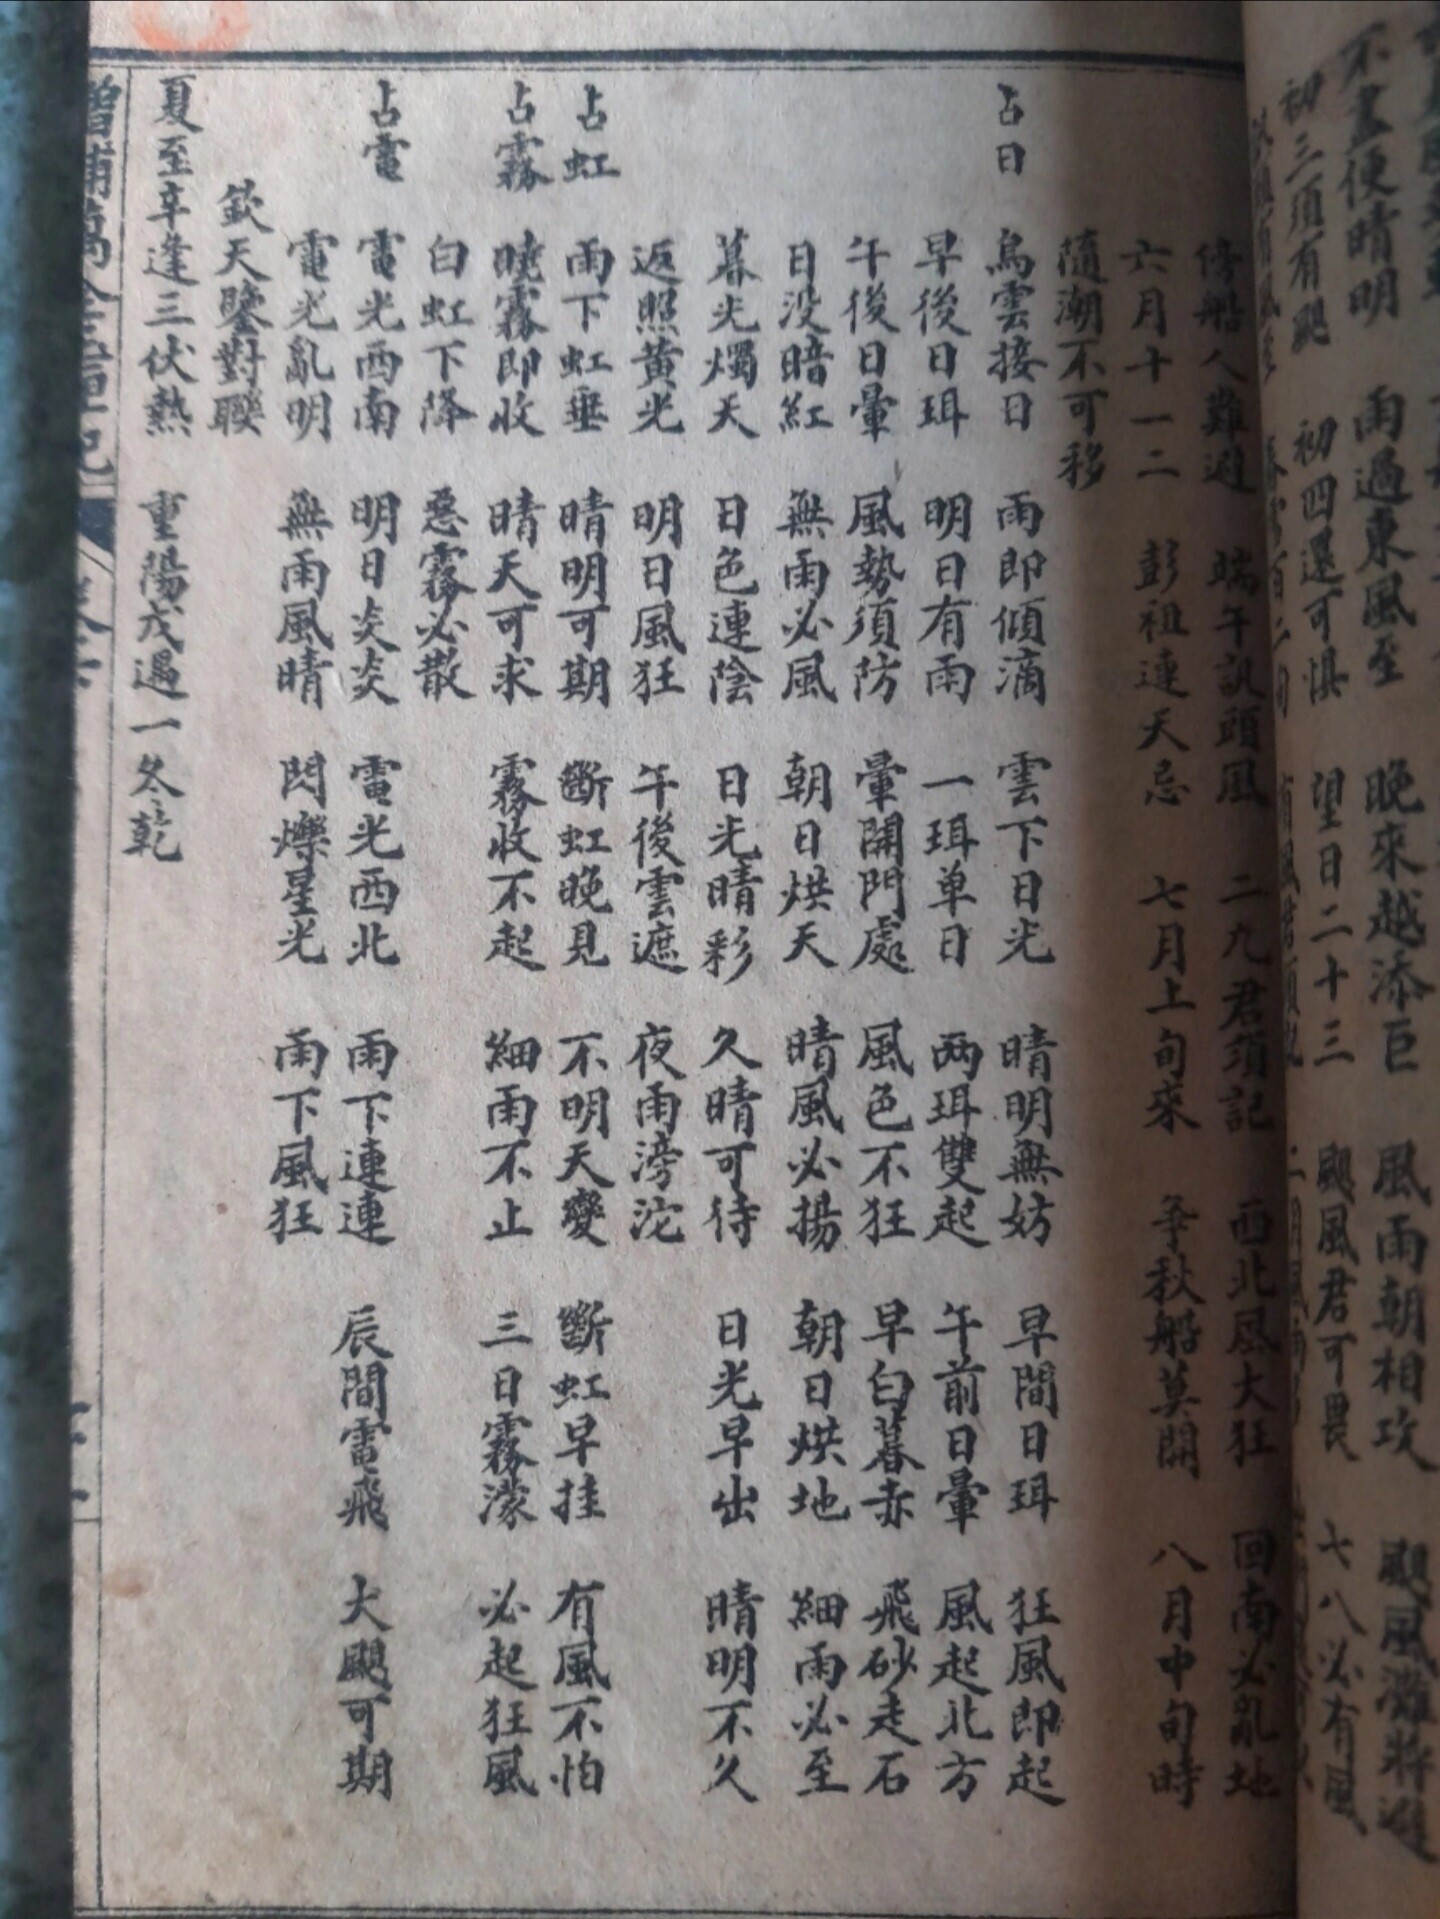 不盡便晴明 雨過東風至 晚來越添巨 風雨朝相攻 颶風難將避
初三須有颶 初四還可懼 望日二十三 颶風君可畏 七八必有風
停船人難避 端午訊頭風 二九君須記 西北風大狂 回南必亂地
六月十一二 彭祖連天忌 七月上旬來 爭秋船莫開 八月中旬時
隨潮不可移
占日 烏雲接日 雨即傾滴 雲下日光 晴明無妨 早間日珥 狂風即起
早後日珥 明日有雨 一珥单日 两珥雙起 午前日暈 風起北方
午後日暈 風勢須防 暈開門處 風色不狂 早白暮赤 飛砂走石
日没暗紅 無雨必風 朝日烘天 晴風必揚 朝日烘地 細雨必至
暮光燭天 日色連陰 日光晴彩 久晴可待 日光早出 晴明不久
返照黄光 明日風狂 午後雲遮 夜雨滂沱
占虹 雨下虹垂 晴明可期 斷虹晚見 不明天變 斷虹早挂 有風不怕
占霧 曉霧即收 晴天可求 霧收不起 細雨不止 三日霧濛 必起狂風
白虹下降 惡霧必散
占電 電光西南 明日炎炎 電光西北 雨下連連 辰間電飛 大颶可期
電光亂明 無雨風晴 閃爍星光 雨下風狂
欽天鑒對聯
夏至辛逢三伏熱 重陽戊遇一冬乾